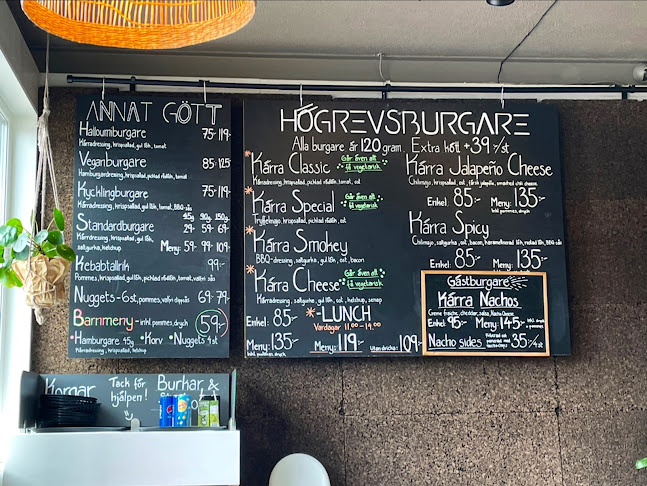 ANNAT GÖTT
Halloumiburgare 75:- 119:-
Kärradressing, krispsallad, gul lök, tomat
Veganburgare 85:- 125:-
Hamburgardressing, krispsallad, picklad rödlök, tomat
Kycklingburgare 75:- 119:-
Kärradressing, krispsallad, gul lök, tomat, BBQ-sås
45g 90g 150g
Standardburgare 29:- 59:- 69:-
Kärradressing, krispsallad, gul lök,
saltgurka, ketchup Meny: 59:- 99:- 109:-
Kebabtallrik 99:-
Pommes, krispsallad, gul lök, picklad rödlök, tomat, valfri sås
Nuggets - 6st, pommes, valfri dippsås 69:- 79:-
Barnmeny - inkl. pommes, dryck 59:-
• Hamburgare 45g • Korv • Nuggets 4st
Kärradressing, krispsallad, ketchup
HÖGREVSBURGARE
Alla burgare är 120 gram. Extra kött +39:-/st
*Kärra Classic Går även att få vegetarisk
Kärradressing, krispsallad, picklad rödlök, tomat, ost
*Kärra Special Går även att få vegetarisk
Tryffelmajo, krispsallad, picklad rödlök, ost
*Kärra Smokey
BBQ-dressing, saltgurka, gul lök, ost, bacon
*Kärra Cheese Går även att få vegetarisk
Kärradressing, saltgurka, gul lök, ost, ketchup, senap
Enkel: 85:-
Meny: 135:-
Inkl. pommes, dryck
*-LUNCH
Vardagar 11.00-14.00
Meny: 119:- Utan dricka: 109:-
Kärra Jalapeño Cheese
Chilimajo, krispsallad, ost, färsk jalapeño, smashed chili cheese
Enkel: 85:- Meny: 135:-
Inkl. pommes, dryck
Kärra Spicy
Chilimajo, saltgurka, ost, bacon, karamelliserad lök, rostad lök, BBQ-sås
Enkel: 85:- Meny: 135:-
Gästburgare
Kärra Nachos
Creme fraiche, cheddar, salsa, Nacho Cheese
Enkel: 95:- Meny: 145:-
Nacho sides 35:-/4st
Kornar Tack för hjälpen! Burkar &